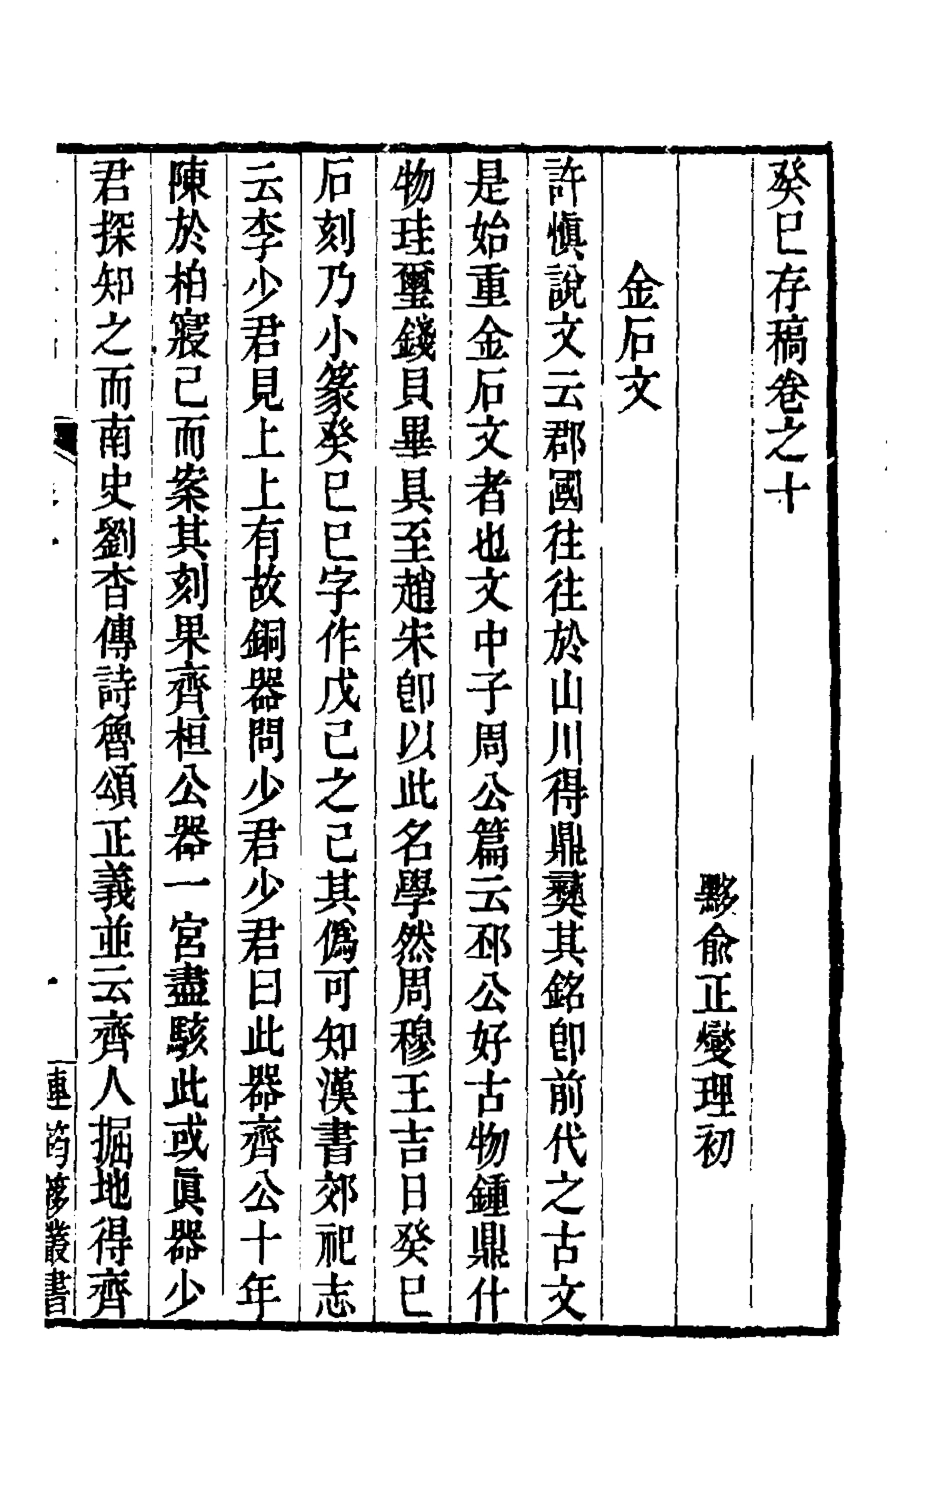 癸巳存稿卷之十
黟俞正燮理初
金石文
許慎說文云郡國往往於山川得鼎彝其銘卽前代之古文
是始重金石文者也文中子周公篇云邳公好古物鍾鼎什
物珪璽錢貝畢具至趙宋卽以此名學然周穆王吉日癸巳
石刻乃小篆癸巳巳字作戊己之己其僞可知漢書郊祀志
云李少君見上上有故銅器問少君少君曰此器齊公十年
陳於柏寢已而案其刻果齊桓公器一宮盡駭此或眞器少
君探知之而南史劉杳傳詩魯頌正義並云齊人掘地得齊
連筠簃叢書